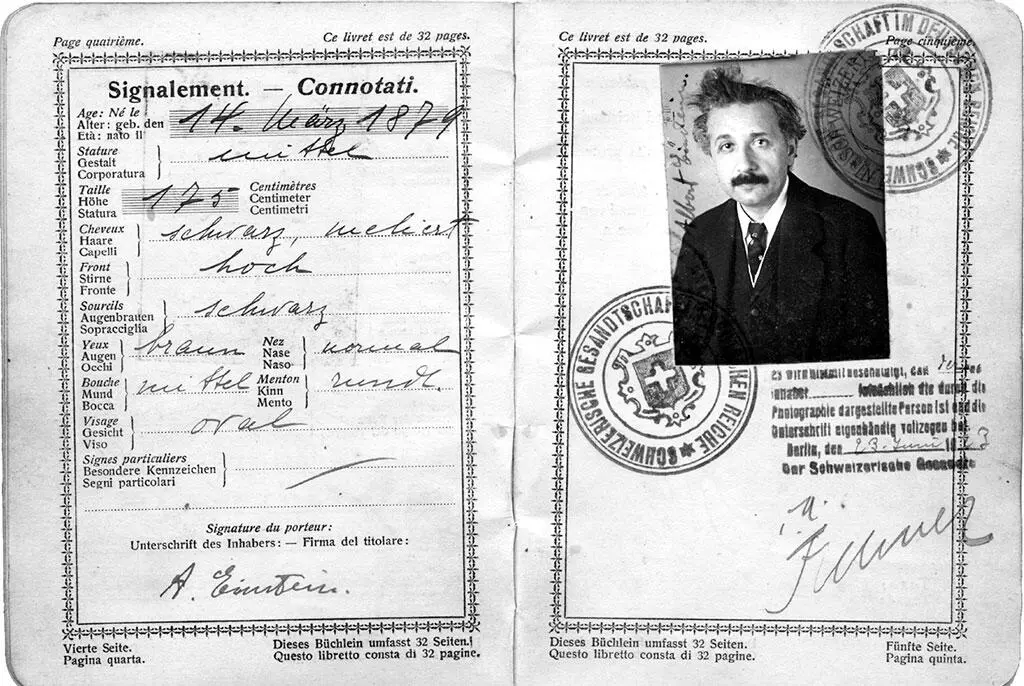 Page quatrième.
Ce livret est de 32 pages.
Signalement. — Connotati.
Age: Né le
Alter: geb. den
Età: nato il
14. März 1879
Stature
Gestalt
Corporatura
mittel
Taille
Höhe
Statura
175
Centimètres
Centimeter
Centimetri
Cheveux
Haare
Capelli
schwarz, meliert
Front
Stirne
Fronte
hoch
Sourcils
Augenbrauen
Sopracciglia
schwarz
Yeux
Augen
Occhi
braun
Nez
Nase
Naso
normal
Bouche
Mund
Bocca
mittel
Menton
Kinn
Mento
rund.
Visage
Gesicht
Viso
oval
Signes particuliers
Besondere Kennzeichen
Segni particolari
Signature du porteur:
Unterschrift des Inhabers: — Firma del titolare:
A. Einstein.
Vierte Seite.
Pagina quarta.
Dieses Büchlein umfasst 32 Seiten.
Questo libretto consta di 32 pagine.
Ce livret est de 32 pages.
Page cinquième.
Albert Einstein
SCHWEIZERISCHE GESANDTSCHAFT IM DEUTSCHEN REICHE
SCHWEIZERISCHE GESANDTSCHAFT REICHE
Es wird hiermit bescheinigt, daß
die durch die
Photographie dargestellte Person ist und die
Unterschrift eigenhändig vollzogen hat.
Berlin, den 23. Juni 1923
Der Schweizerische Gesandte
Dieses Büchlein umfasst 32 Seiten.
Questo libretto consta di 32 pagine.
Fünfte Seite.
Pagina quinta.